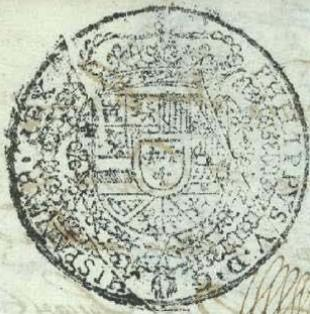 PHILIPPUS.V.D.G.
HISPANIAR.REX